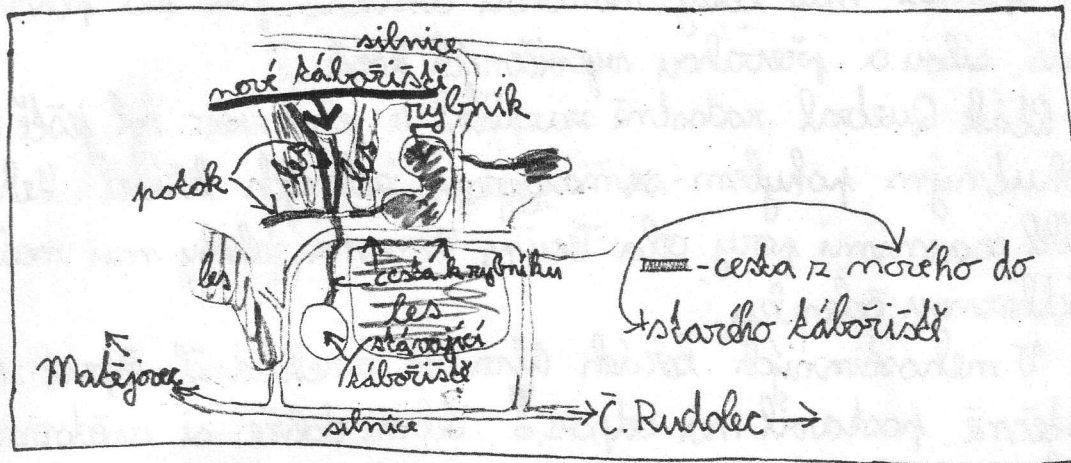 silnice
nové tábořiště
rybník
potok
cesta k rybníku
les
les
stávající
tábořiště
Matějovec
silnice
Č. Rudolec
-cesta z nového do
starého tábořiště